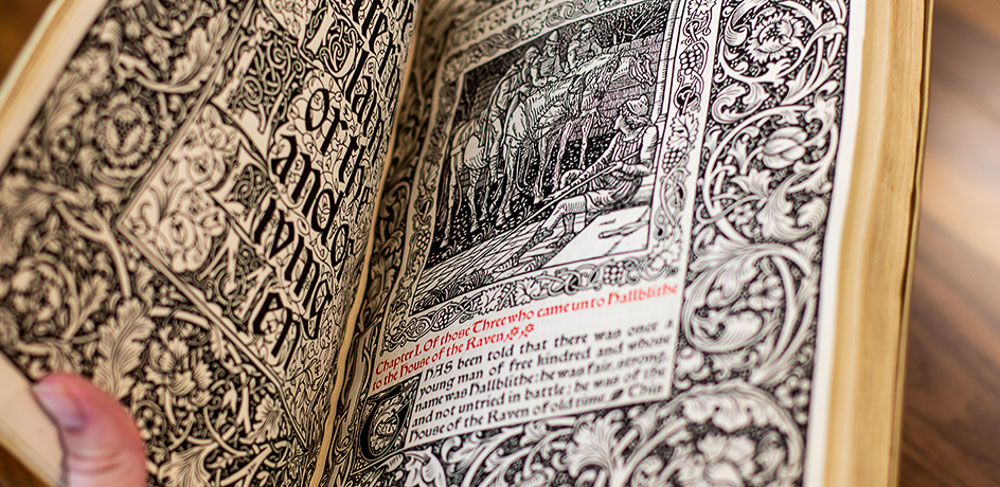 or the
and of
iving
Men
Chapter I. Of those Three who came unto Hallblithe
to the House of the Raven
HAS been told that there was once a
young man of free kindred and whose
name was Hallblithe: he was fair, strong,
and not untried in battle; he was of the
House of the Raven of old time. This